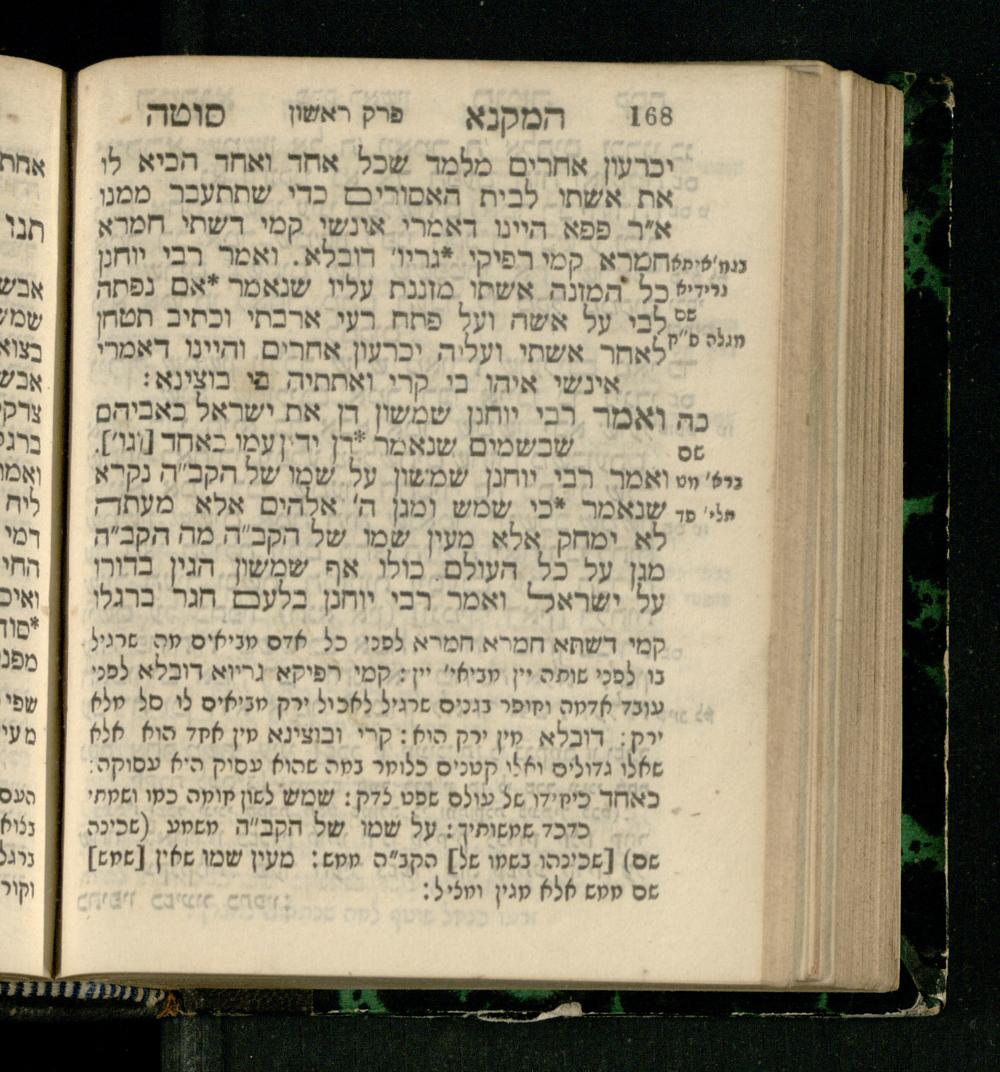 168 המקנא פרק ראשון סוטה
יכרעון אחרים מלמד שכל אחד ואחד הביא לו
את אשתו לבית האסורים כדי שתתעבר ממנו
א״ר פפא היינו דאמרי אינשי קמי דשתי חמרא
חמרא קמי רפיקי *גריו׳ דובלא. ואמר רבי יוחנן
כל המזנה אשתו מזננת עליו שנאמר *אם נפתה
לבי על אשה ועל פתח רעי ארבתי וכתיב תטחן
לאחר אשתי ועליה יכרעון אחרים והיינו דאמרי
אינשי איהו בי קרי ואתתיה בי בוצינא:
כה ואמר רבי יוחנן שמשון דן את ישראל כאביהם
שבשמים שנאמר *דן ידין עמו כאחד [וגו׳].
ואמר רבי יוחנן שמשון על שמו של הקב״ה נקרא
שנאמר *כי שמש ומגן ה׳ אלהים אלא מעתה
לא ימחק אלא מעין שמו של הקב״ה מה הקב״ה
מגן על כל העולם כולו אף שמשון הגין בדורו
על ישראל ואמר רבי יוחנן בלעם חגר ברגלו
קמי דשתא חמרא חמרא לפני כל אדם מביאים מה שרגיל
בו לפני שותה יין מביאי׳ יין: קמי רפיקא גריוא דובלא לפני
עובד אדמה וחופר בגנים שרגיל לאכול ירק מביאים לו סל מלא
ירק: דובלא מין ירק הוא: קרי ובוצינא מין אחד הוא אלא
שאלו גדולים ואלו קטנים כלומר במה שהוא עסוק היא עסוקה:
כאחד כיחידו של עולם שפט לדק: שמש לשון חומה כמו ושמתי
כדכד שמשותיך: על שמו של הקב״ה משמע (שכינה
שם) [שכינהו בשמו של] הקב״ה ממש: מעין שמו שאין [שמש]
שם ממש אלא מגין ומציל:
שם
מגלה
שם
ברא׳ מט
תלי׳ פד